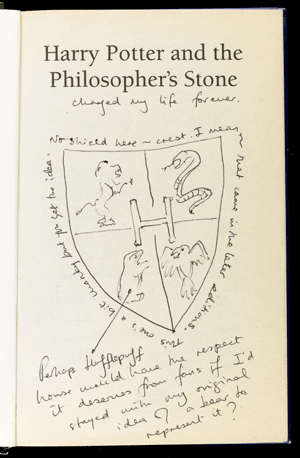 Harry Potter and the
Philosopher's Stone
changed my life forever.
No shield here - crest, I mean - that came in the later editions.
This one's a bit wonky but you get the idea.
H
Perhaps Hufflepuff
house would have the respect
it deserves from fans if I'd
stayed with my original
idea of a bear to
represent it?